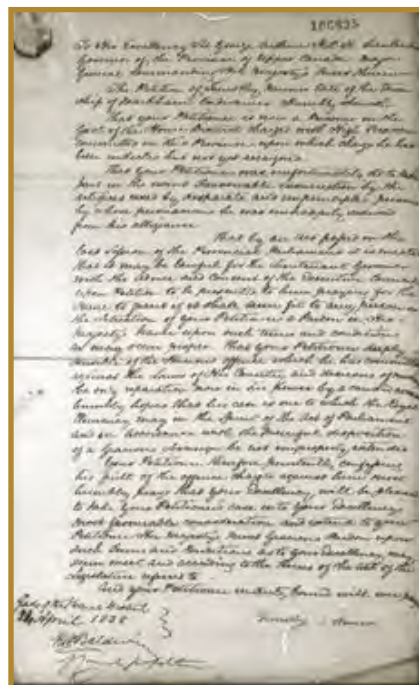 186835
To His Excellency Sir George Arthur K.C.H. Lieutenant
Governor of the Province of Upper Canada Major
General Commanding Her Majesty's Forces therein
The Petition of Timothy Munro late of the Town
ship of Markham Humbly Sheweth
That your Petitioner is now a Prisoner in the
Gaol of the Home District charged with High Treason
committed in this Province upon which charge he has
been indicted but not yet arraigned
That your Petitioner was unfortunately led to take
part in the recent Treasonable insurrection by the
by desperate and unprincipled persons
by whose persuasions he was unhappily seduced
from his allegiance
That by an Act passed in the
last Session of the Provincial Parliament it is enacted
that it may be lawful for the Lieutenant Governor
with the advice and Consent of the Executive Council
upon Petition to be presented to him praying for the
same to grant if it shall seem fit to any person in
the situation of Your Petitioner a Pardon in Her
Majesty's Name upon such terms and conditions
as may seem proper That your Petitioner deeply
sensible of the heinous offence which he has committed
against the Laws of his Country and desirous of making
the only reparation now in his power by a
humbly hopes that his case is one to which the Royal
Clemency may in the Spirit of the Act of Parliament
and in accordance with the merciful disposition
of a Gracious Sovereign be not improperly extended
Your Petitioner therefore penitently confessing
his guilt of the offence charged against him most
humbly prays that Your Excellency will be pleased
to take Your Petitioner's case into Your Excellency's
most favourable consideration and extend to your
Petitioner Her Majesty's Most Gracious Pardon upon
such Terms and Conditions as to Your Excellency may
seem meet and according to the terms of the Act of the
Legislature referred to
And your Petitioner as in duty bound will ever pray
Gaol of the Home District
April 1838
Timothy Munro
Baldwin